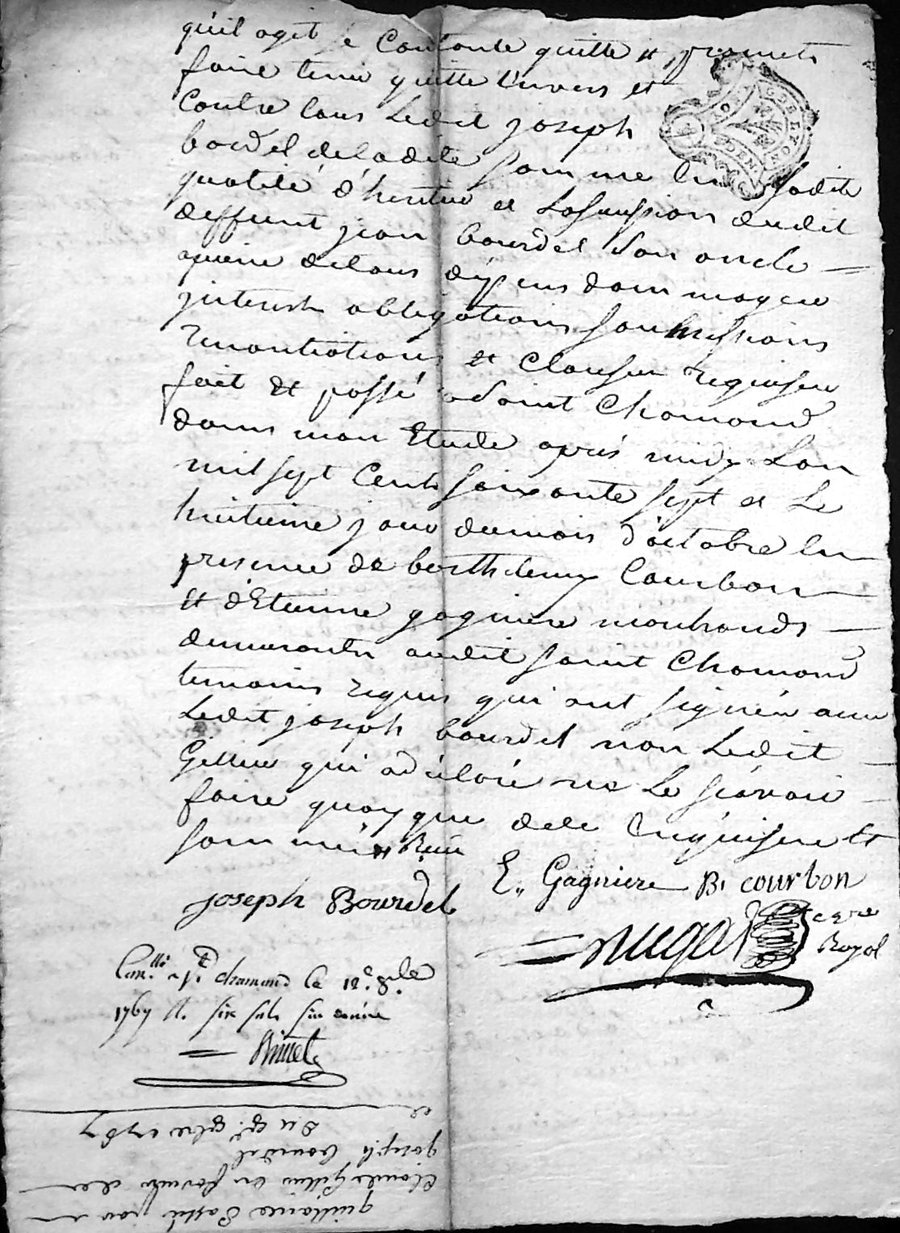 qu'il agit se Contante quitte et promets
faire tenir quitte Envers et
Contre tous Ledit joseph
bourdel de ladite somme En sadite
qualité d'heritier et Lasuession dudit
deffunt jean bourdel son oncle —
apeine detous dépens dommages
jnterest obligations soumissions
renontiations et Clauses requises
fait et passé a Saint Chamond
dans mon Etude aprés midy Lan
mil sept Cents soixante sept et Le
huitieme jour dumois d'octobre En
presence de berthelemy Courbon —
et d'Etienne gagniere marchands —
demeurants audit saint Chamond
temoins requis qui ont signés avec
Ledit joseph bourdel non Ledit —
Gillier qui adeclaré ne Le sçavoir —
faire quoyque dece Enquis et
sommé
joseph Bourdel
E,, Gagniere B. courbon
Royal
chamond Le 12e 8.bre
1767 R. six sols six deniers
quittance
joseph bourdel
1767